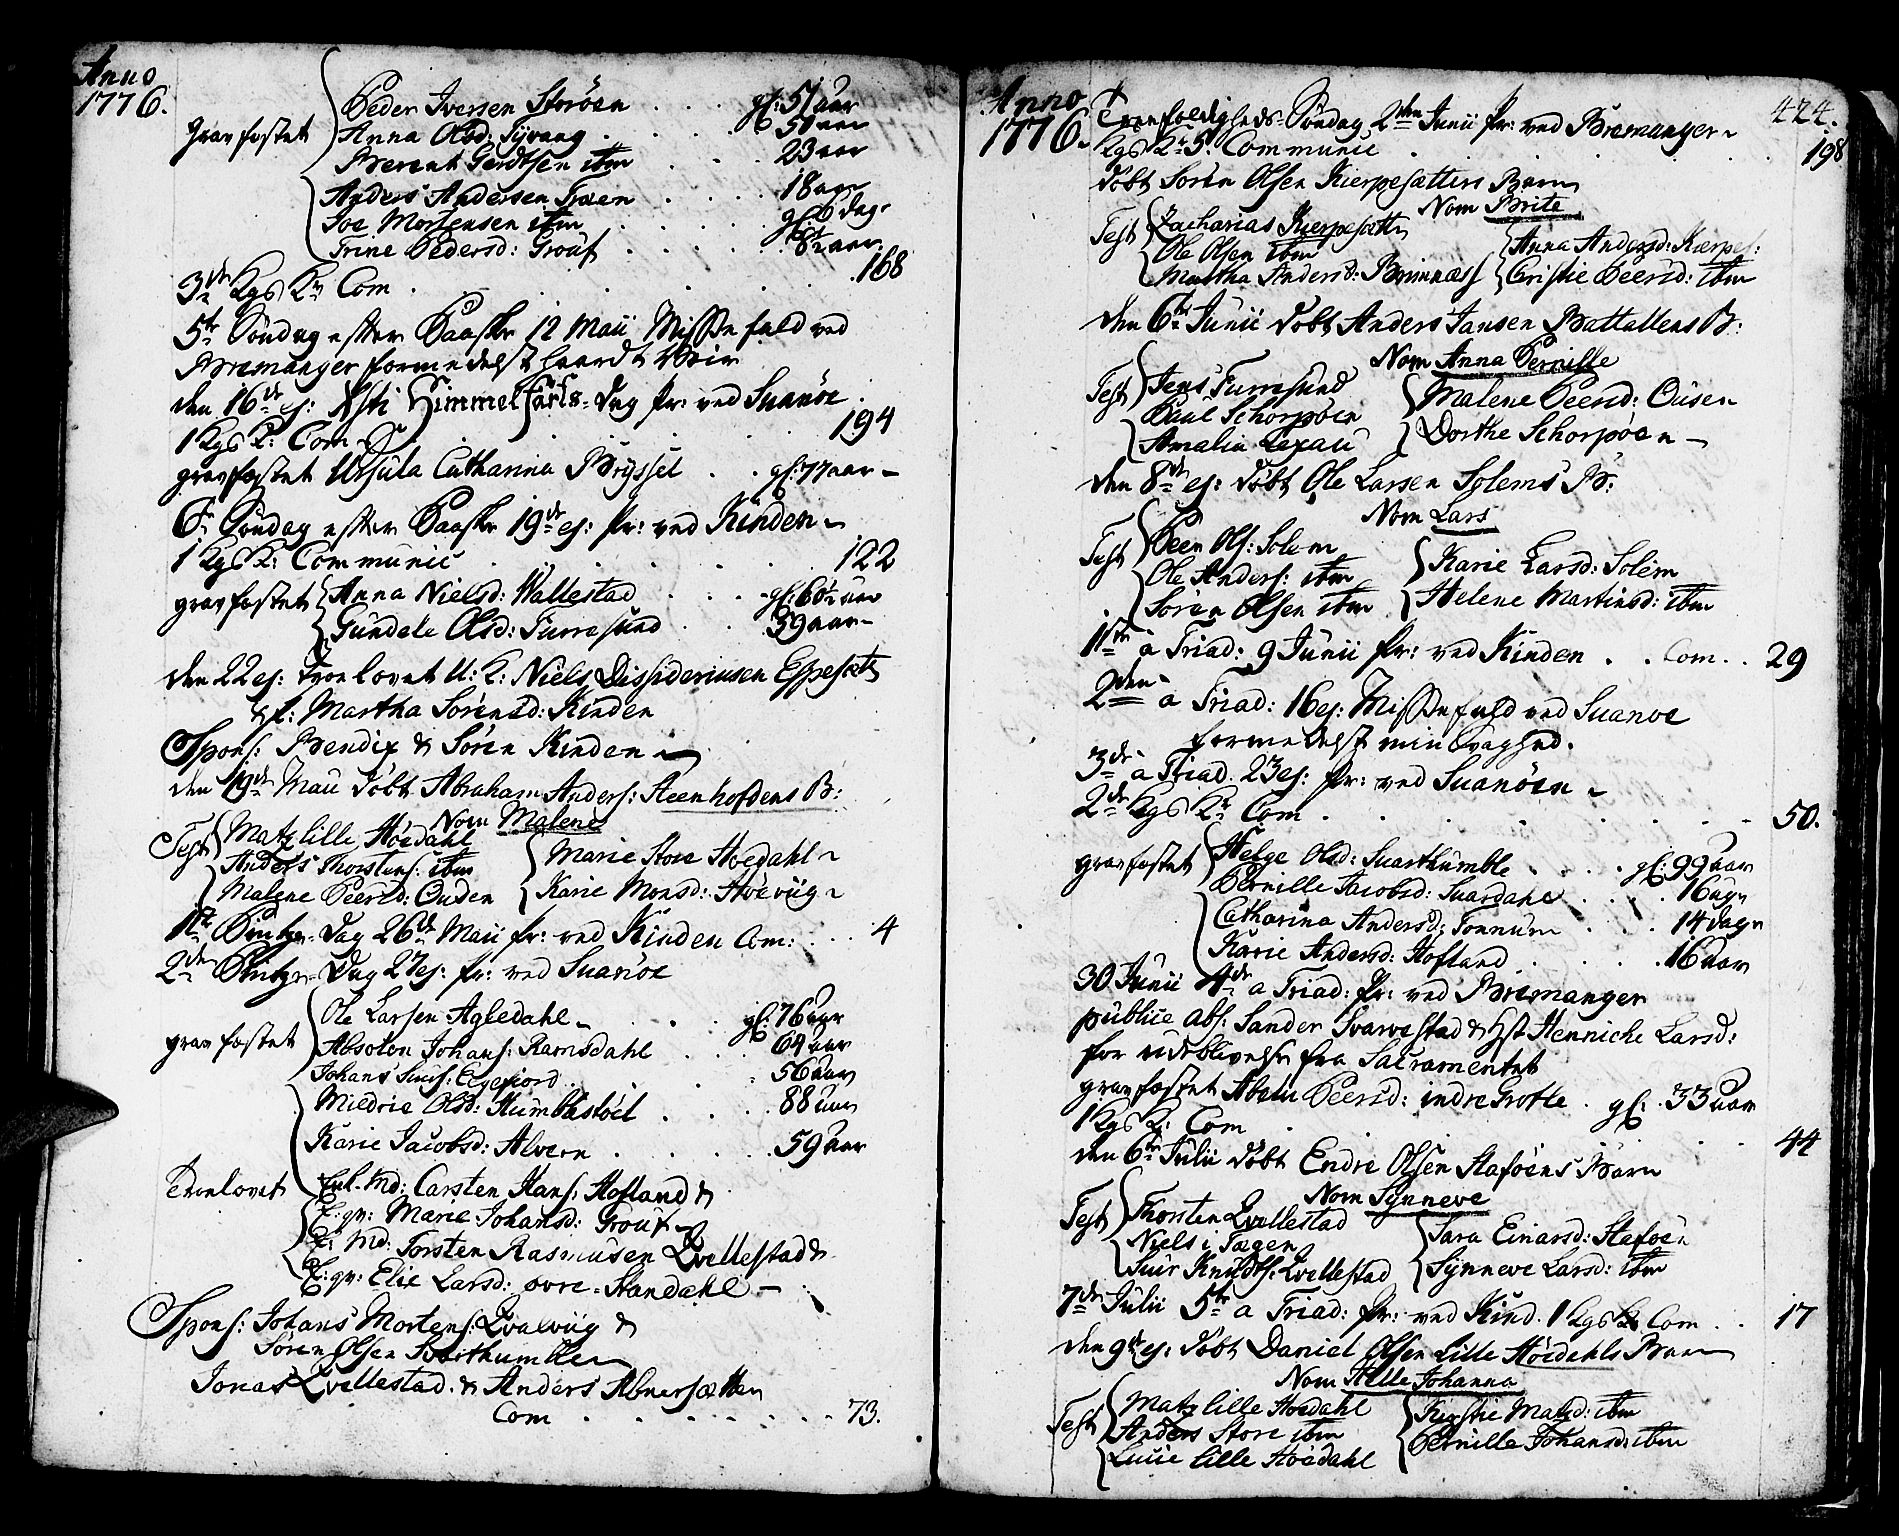 Anno
1776.
gravfæstet
Peder Iversen Storöen . . . gl: 51 aar
Anna Olsd: Syvang . . . . 50 aar
Berent Gerdtsen ibm . . . . 23 aar
Anders Andersen Træen . . . . 18 aar
Joe Mortensen ibm . . . . gl: 6 dage
Trine Pedersd: Grouf . . . . 8½ aar
3de Kgs Kr Com . . . . . . . 168
5te Söndag efter Paaske 12 Maii Messefald ved
Bremanger formedelst haardt Veir
den 16de ej: Xsti Himmelfarts-Dag Pr: ved Suanöe .
1 Kgs K: Com . . . . . . 194
gravfæstet Ursula Catharina Bryssel . . gl: 77 aar
6te Söndag efter Paaske 19de ej: Pr: ved Kinden
1 Kgs K: Communic . . . . . . 122
gravfæstet Anna Nielsd: Wallestad . . . gl: 60½ aar
Gundele Olsd: Furresund . . 39 aar
den 22 ej: Trolovet U: K: Niels Dissideriusen Espeset
& P: Martha Sörensd: Kinden
Spons: Bendix & Sören Kinden
den 19de Maii Döbt Abraham Anders: Steenhofdens B:
Nom Malene
Test
Matz lille Höedahl
Anders Thorstens: ibm
Malene Peersd: Ousen
Marie Store Höedahl
Karie Monsd: Höeviig
1ste Pintze-Dag 26de Maii Pr: ved Kinden Com: . . . 4
2den Pintze-Dag 27 ej: Pr: ved Suanöe
gravfæstet
Ole Larsen Agledahl . . . gl: 76 aar
Absolon Johans: Ramsdahl . . 64 aar
Johans Suis: Ogefiord . . . . 56 aar
Mildrie Olsd: Humblestöel . . . 88 aar
Karie Jacobsd: Alvern . . . . 59 aar
Trolovet
Enl. Md: Carsten Hans: Hofland &
E: qv: Marie Johansd: Grouf
E: Md: Torsten Rasmusen Qvellestad &
E: qv: Elie Larsd: övre-Standahl
Spons: Johans Mortens: Qvalviig &
Sören Olsen Svarthumble
Jonas Qvellestad & Anders Abnersætter
Com . . . . . . . . 73.
Anno
1776.
424.
Trefoldigheds-Söndag 2den Junii Pr: ved Bremanger
Kgs K: 5. Communic . . . . . . . 198
döbt Sören Olsen Kierpesætters Barn
Nom Brite
Test
Zacharias Kierpesætter
Ole Olsen ibm
Martha Andersd: Brimnæss
Anna Andersd: Kærpes:
Cristie Peersd: ibm
den 6te Junii döbt Anders Jansen Battallens B:
Nom Anna Pernille
Test
Jens Furresund
Paul Schorpöen
Amalia Lexau
Malene Peersd: Ousen
Dorthe Schorpöen
den 8de ej: döbt Ole Larsen Solems B:
Nom Lars
Test
Peer Ols: Solem
Ole Anders: ibm
Sören Olsen ibm
Karie Larsd: Solem
Helene Martinsd: ibm
1ste a Triad: 9 Junii Pr: ved Kinden . . Com . . 29
2den a Triad: 16 ej: Messefald ved Suanöe
formedelst min Svaghed.
3de a Triad. 23 ej: Pr: ved Suanöen
2de Kgs Kr Com . . . . . . . . 50.
gravfæstet
Helge Olsd: Svarthumble . . . . gl: 99 aar
Pernille Jacobsd: Suardahl . . . . 16 uger
Catharina Andersd: Tonnum . . . 14 dage
Karie Andersd: Hofland . . . . 16 aar
30 Junii 4de a Triad: Pr: ved Bremanger
publice abs: Sander Svarvestad & Hst Henniche Larsd:
for Udeblivelse fra Sacramentet
gravfæstet Abelu Peersd: indre Grotle . gl: 33 aar
1 Kgs K: Com . . . . . . . 44
den 6te Julii döbt Endre Olsen Stafoens Barn
Nom Synneve
Test
Thorsten Qvellestad
Niels i Tægen
Siur Knudts: Qvellestad
Sara Einarsd: Stafoen
Synneve Larsd: ibm
7de Julii 5te a Triad: Pr: ved Kind. 1 Kgs K Com . . 17
den 9de ej: döbt Daniel Olsen Lille Höedahls Barn
Nom Helle Johanna
Test
Matz lille Höedahl
Anders Store ibm
Lucie lille Höedahl
Kirstie Matzd: ibm
Pernille Johansd: ibm